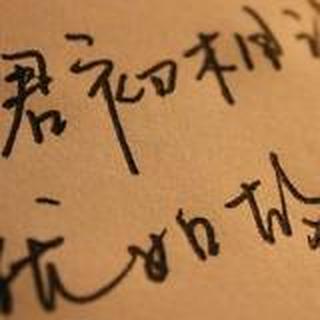 君初相
犹如故